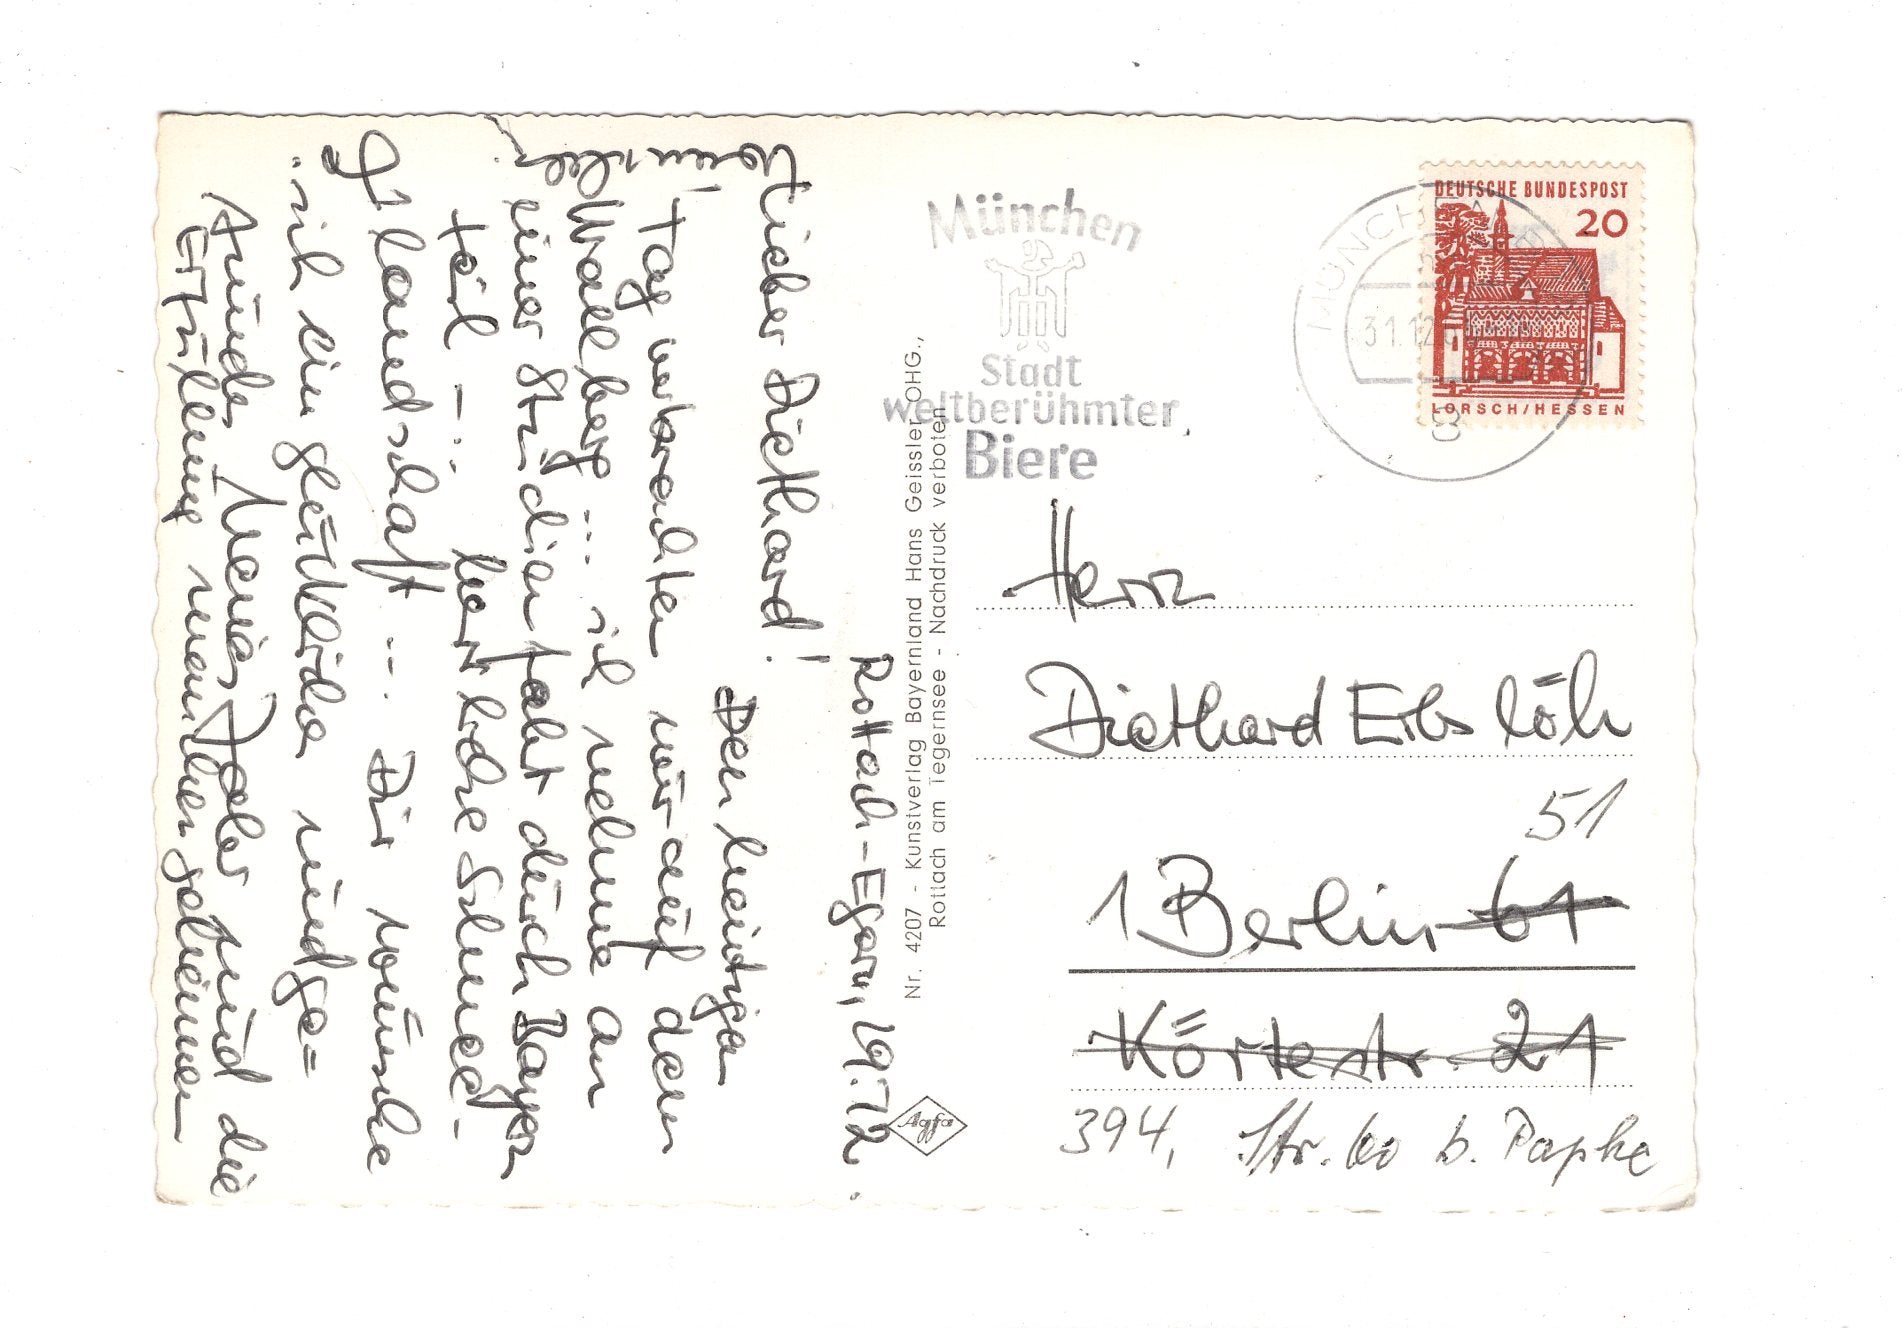 Rottach-Egern, 29.12.
Lieber Diethard!
Den heutigen
Tag verbrachten wir auf dem
Wallberg --- ich nehme an
einer Studienfahrt durch Bayern
teil - :. herrliche Schnee-
landschaft --- Dir wünsche
ich ein glückliches, rundge-
sundes neues Jahr und die
Erfüllung mancher geheimen
Wünsche.
Nr. 4207 - Kunstverlag Bayernland Hans Geissler OHG.,
Rottach am Tegernsee - Nachdruck verboten
Agfa
München
Stadt
weltberühmter
Biere
MÜNCHEN
31.12.
8
DEUTSCHE BUNDESPOST
20
LORSCH/HESSEN
Herrn
Diethard Erbslöh
51
1 Berlin 61
Körtestr. 21
394, Str. 60 b. Papke